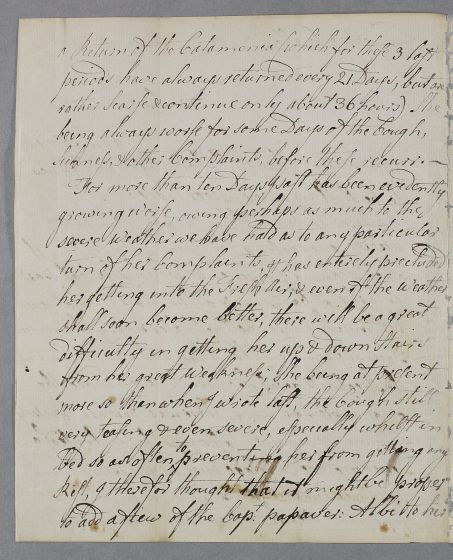 a Return of the Catamenia (which for these 3 last
periods have always returned every 21 Days, but are
rather scarse & continue only about 36 hours) She
being always worse for some Days of the Cough,
Sickness, & other Complaints, before these recurr. —
For more than ten Days past has been evidently
growing worse, owing perhaps as much to the
severe Weather we have had as to any particular
turn of her Complaints, it has entirely precluded
her getting into the Fresh Air; & even if the weather
shall soon become better, there will be a great
difficulty in getting her up & down Stairs
from her great Weakness; She being at present
more so than when I wrote last, the Cough still
very teasing & even severe, especially whilst in
Bed so as often to prevent her from getting any
Rest, I therefor thought that it might be proper
to add a few of the Caps. papaver: Alb: to her